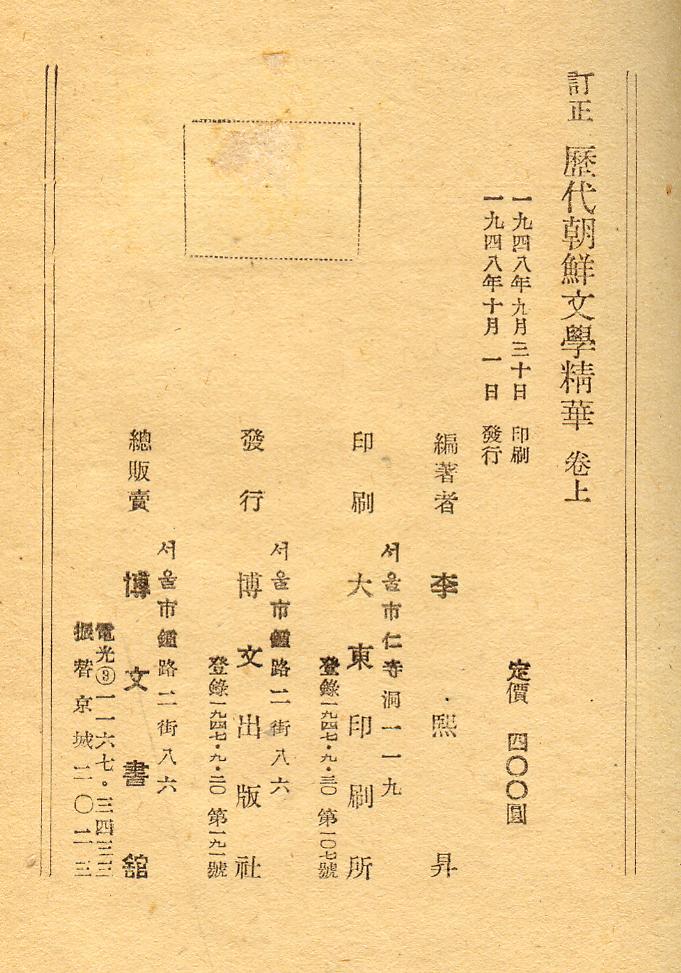 訂正 歷代朝鮮文學精華 卷上
一九四八年九月三十日 印刷
一九四八年十月一日 發行
定價 四〇〇圓
編著者 李熙昇
서울市仁寺洞一一九
印刷 大東印刷所
登錄一九四七・九・三〇 第一〇七號
서울市鐘路二街八六
發行 博文出版社
登錄一九四七・九・二〇 第一九一號
서울市鐘路二街八六
總販賣 博文書舘
電光③一一六七・三四三三
振替京城二〇二三